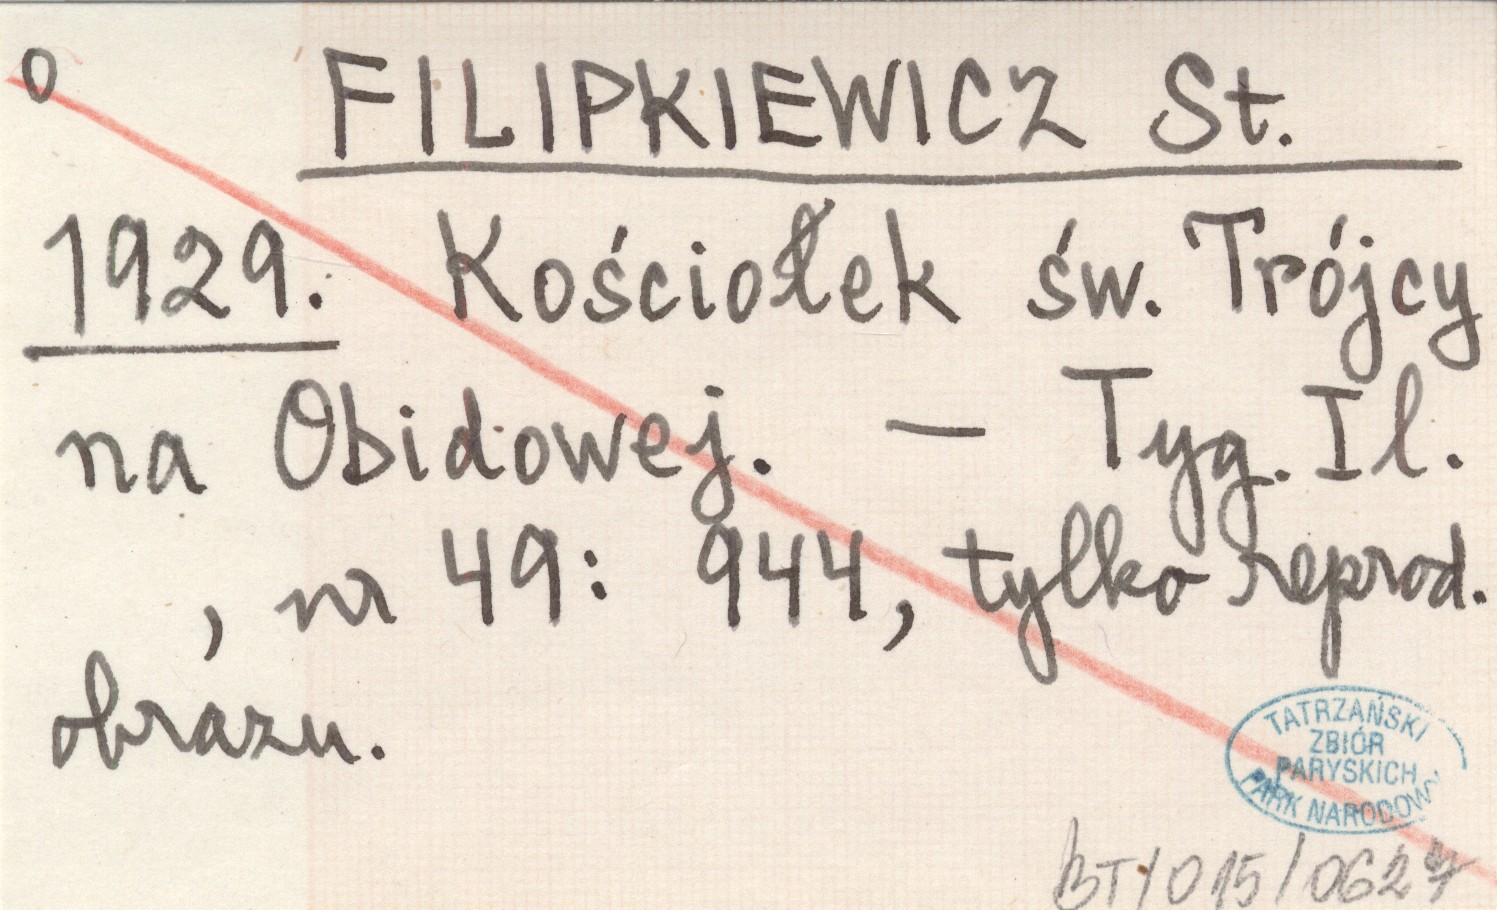 O
FILIPKIEWICZ St.
1929. Kościołek św. Trójcy
na Obidowej. — Tyg. Il.
, nr 49: 944, tylko reprod.
obrazu.
TATRZAŃSKI
ZBIÓR
PARYSKICH
PARK NARODOWY
BT/015/0627